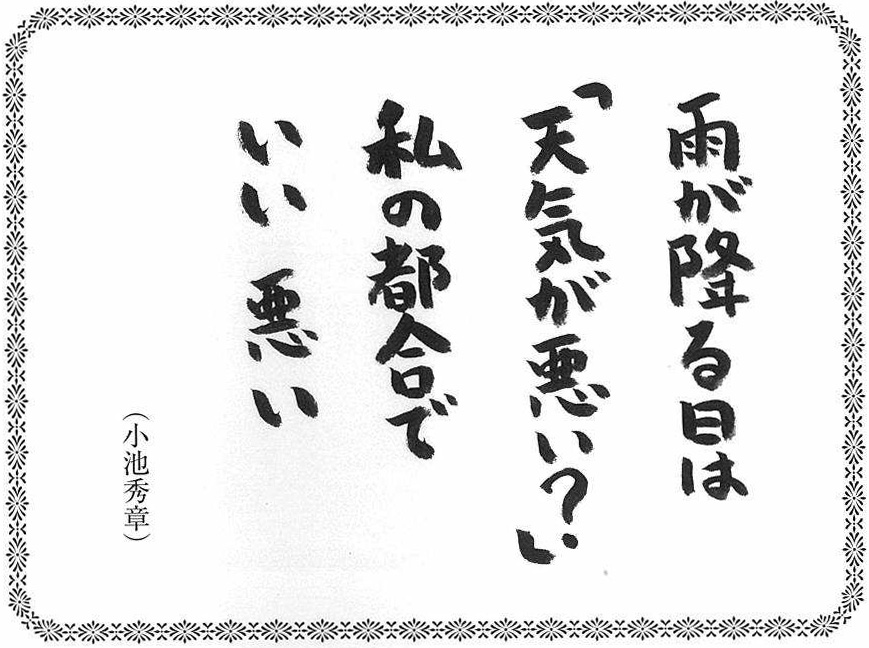 雨が降る日は
「天気が悪い?」
私の都合で
いい 悪い
(小池秀章)